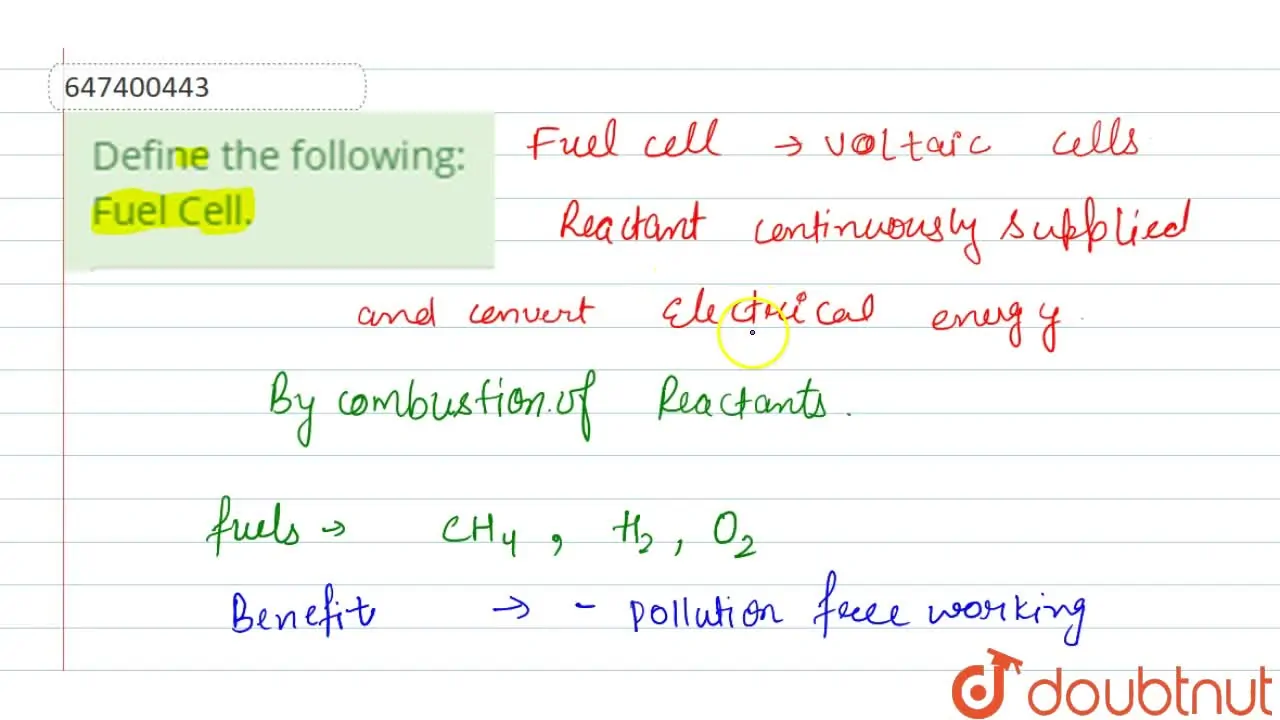 647400443
Define the following:
Fuel Cell.
Fuel cell → voltaic cells
Reactant continuously supplied
and convert Electrical energy.
By combustion of Reactants.
fuels → CH4, H2, O2
Benefit → - pollution free working
doubtnut